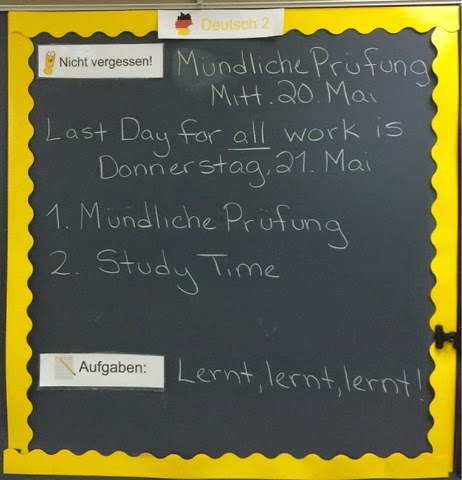 Deutsch 2
Nicht vergessen!
Mündliche Prüfung
Mitt. 20. Mai
Last Day for all work is
Donnerstag, 21. Mai
1. Mündliche Prüfung
2. Study Time
Aufgaben:
Lernt, lernt, lernt!